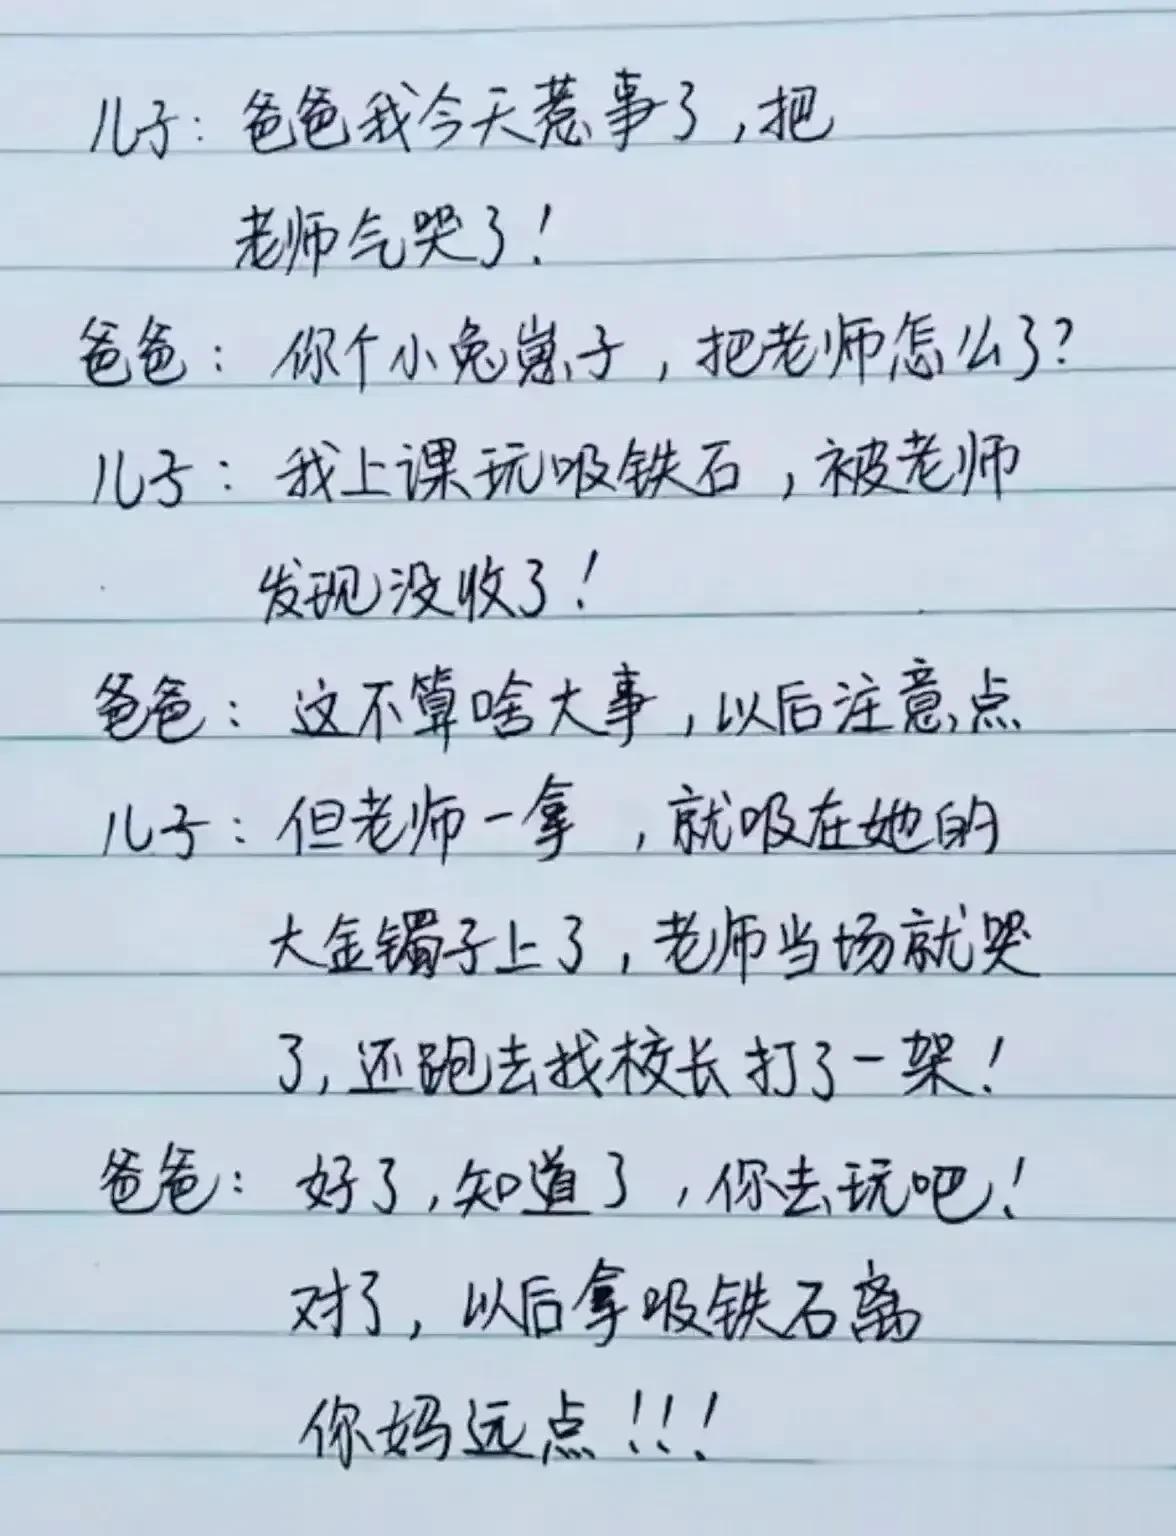 儿子：爸爸我今天惹事了，把
老师气哭了！
爸爸：你个小兔崽子，把老师怎么了？
儿子：我上课玩吸铁石，被老师
发现没收了！
爸爸：这不算啥大事，以后注意点
儿子：但老师一拿，就吸在她的
大金镯子上了，老师当场就哭
了，还跑去找校长打了一架！
爸爸：好了，知道了，你去玩吧！
对了，以后拿吸铁石离
你妈远点！！！